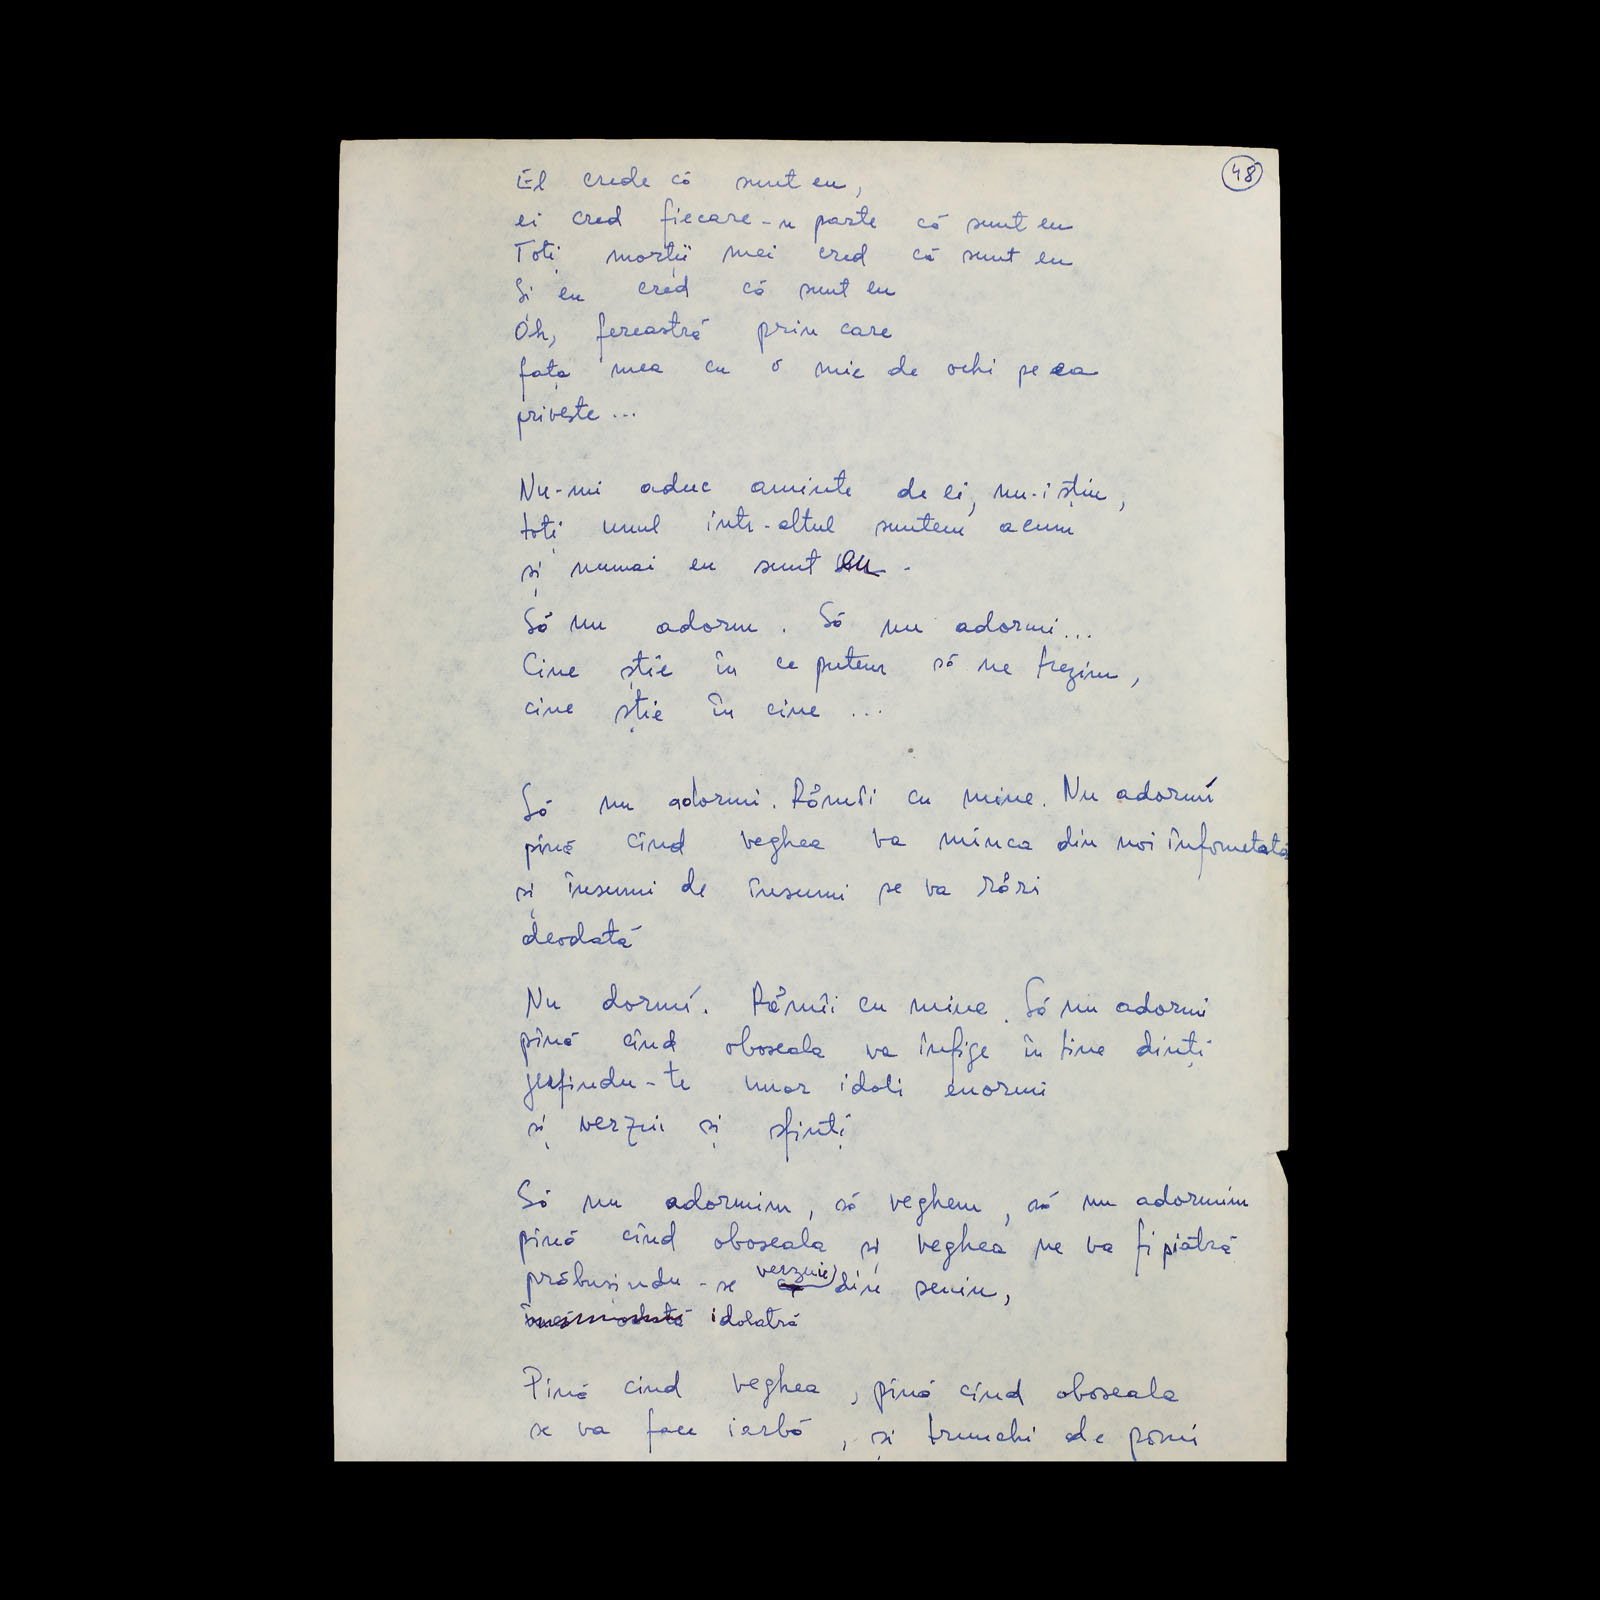 48
El crede că sunt eu,
ei cred fiecare-n parte că sunt eu
Toți morții mei cred că sunt eu
Și eu cred că sunt eu
Oh, fereastră prin care
fața mea cu o mie de ochi pe ea
privește...
Nu-mi aduc aminte de ei, nu-i știu,
toți unul intr-altul suntem acum
și numai eu sunt eu.
Să nu adorm. Să nu adormi...
Cine știe în ce putem să ne trezim,
cine știe în cine ...
Să nu adormi. Rămîi cu mine. Nu adormi
pînă cînd veghea va mînca din noi înfometată
și însumi de însumi se va rări
deodată
Nu dormi. Rămîi cu mine. Să nu adormi
pînă cînd oboseala va înfige în tine dinți
jertfindu-te unor idoli enormi
și verzui și sfinți
Să nu adormim, să veghem, să nu adormim
pînă cînd oboseala și veghea ne va fi piatră
prăbușindu-se verzuie din senin,
idolatră
Pînă cînd veghea, pînă cînd oboseala
se va face iarbă, și trunchi de pomi